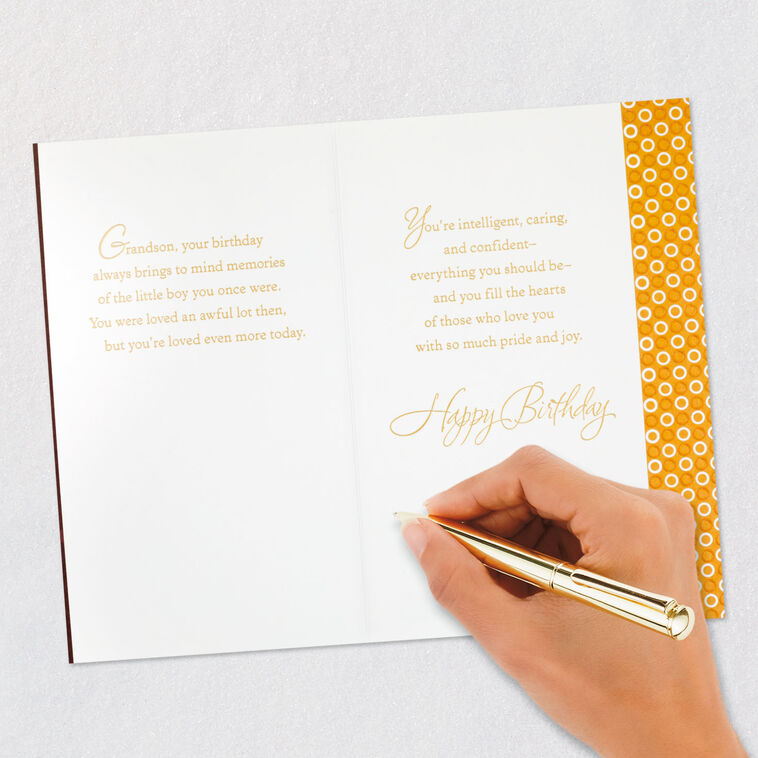 Grandson, your birthday
always brings to mind memories
of the little boy you once were.
You were loved an awful lot then,
but you're loved even more today.
You're intelligent, caring,
and confident–
everything you should be–
and you fill the hearts
of those who love you
with so much pride and joy.
Happy Birthday